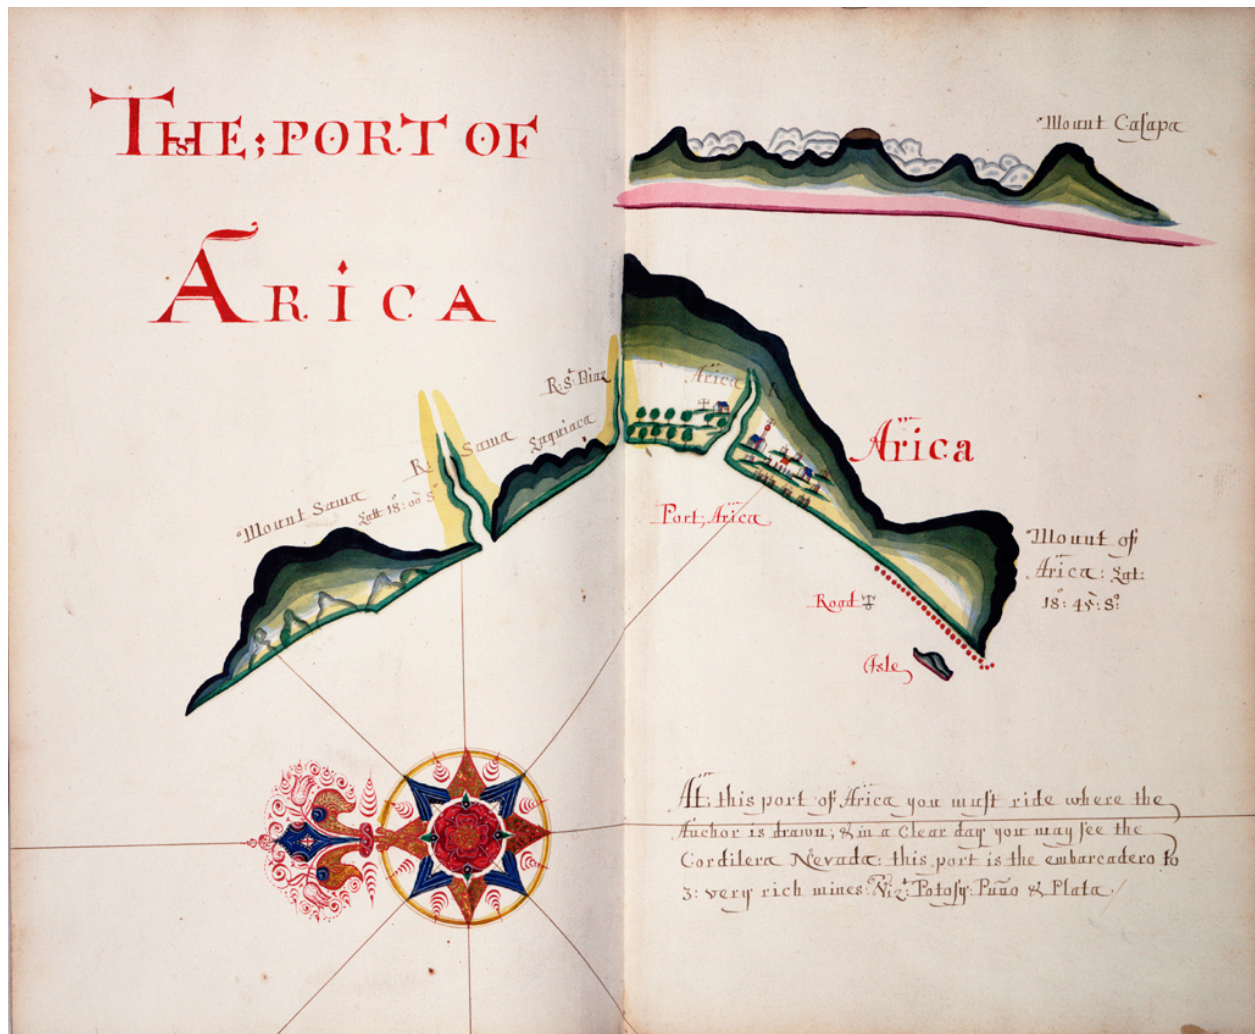 THE; PORT OF
ARICA
Mount Casapa
R: St Diaz
Arica R
R: Sama
Laquiaca
Arica
Mount Sama
Latt 18: 00 S
Port, Arica
Mount of
Arica: Lat:
18: 45: S
Road
Isle
At, this port of Arica you must ride where the
Anchor is drawn, & in a Clear day you may see the
Cordilera Nevada: this port is the embarcadero to
3: very rich mines: Viz: Potosy: Puño & Plata